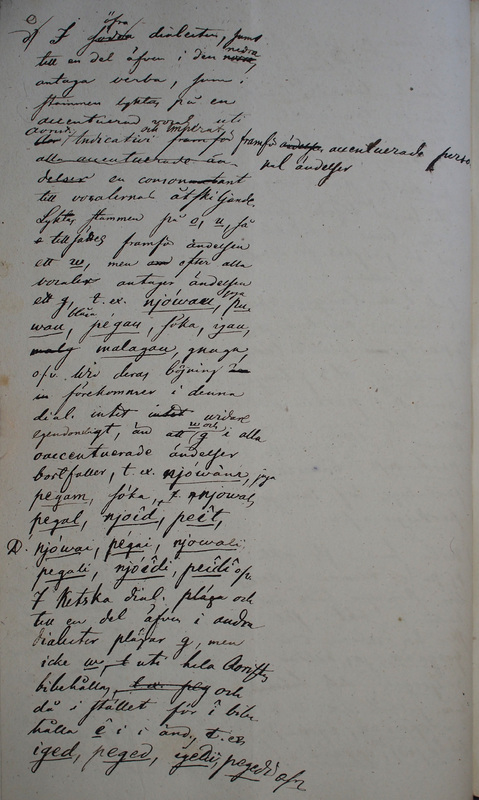 I öfra dialecten, samt
till en del äfven i den nedra,
antaga verba, som i
stammen lyktas på en
accentuerad vocal uti
Indicativi och Imperat. framför accentuerade perso
nal ändelser
en consonant
till vocalernas åtskiljande.
Lyktas stammen på o, u, så
tillsättes framför ändelsen
ett w, men efter alla
vocaler antager ändelsen
ett g, t. ex. njówau,
wau, pégau, söka, igau,
malagau, gnaga,
o.s.v. Wid deras böjning
förekommer i denna
dial. intet widare
egendomligt, än att w och g i alla
oaccentuerade ändelser
bortfaller, t. ex. njówâni, jaga
pegam, söka, njowal,
pegal, njoîd, peît,
njówai, pégai, njowali,
pegali, njóîdi, peîdi o.s.v.
I Ketska dial. pläga och
till en del äfven i andra
dialecter plägar g, men
icke w, uti hela Aoristen
bibehållas, och
då i stället för î bibe
hålla ê i änd. t. ex.
iged, peged, igedi, pegedi o.s.v.